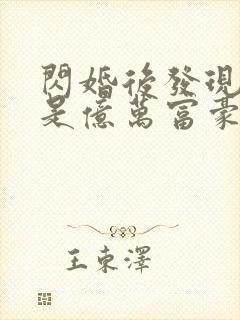 閃婚後發現
是億萬富豪
王東澤